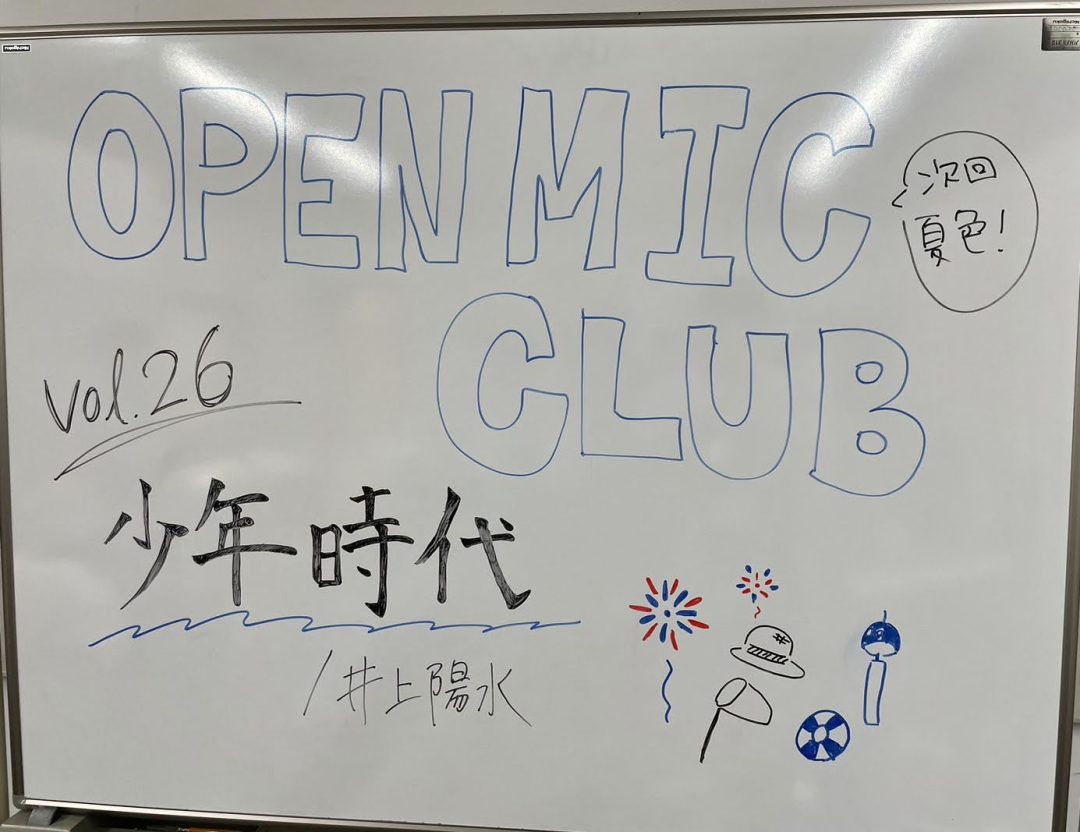 OPEN MIC
CLUB
次回
夏色!
vol.26
少年時代
/井上陽水